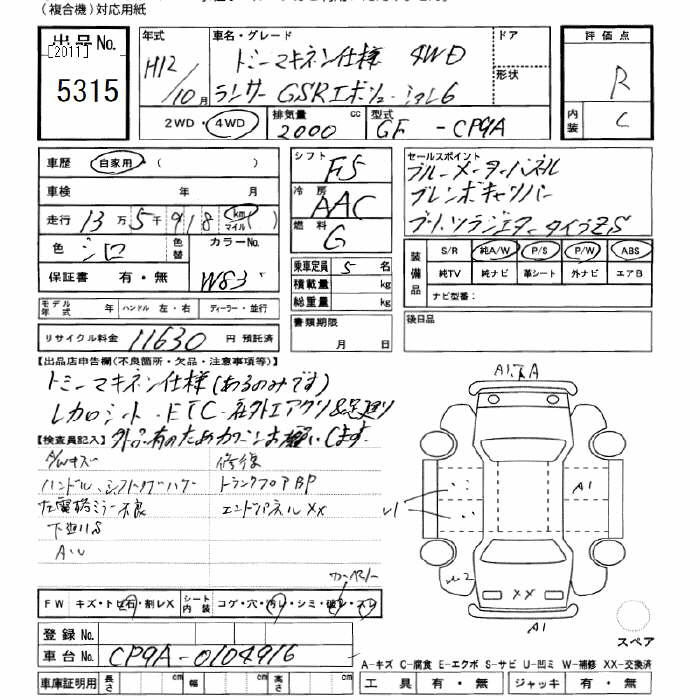 (複合機)対応用紙
出品No.
[2011]
5315
年式
H12
10月
車名・グレード
トミーマキネン仕様 4WD
ランサー GSRエボリューション6
ドア
形状
評価点
R
内装
C
2WD・4WD
排気量
2000 cc
型式
GF - CP9A
車歴 自家用・( )
車検 年 月
走行 13万5千918 km マイル
色 シロ 色替
カラーNo.
W83
保証書 有・無
モデル年式 年 ハンドル 左・右 ディーラー・並行
リサイクル料金 11630 円 預託済
シフト F5
冷房 AAC
燃料 G
乗車定員 5 名
積載量 kg
総重量 kg
書類期限
月 日
セールスポイント
ブルーメーターパネル
ブレンボキャリパー
装備品
S/R 純A/W P/S P/W ABS
純TV 純ナビ 革シート 外ナビ エアB
ナビ型番:
後日品
【出品店申告欄(不良箇所・欠品・注意事項等)】
トミーマキネン仕様(あるのみです)
レカロシート・ETC・社外エアクリ&足廻り
外品有のため
【検査員記入】
A/Wキズ
左電格ミラー不良
下廻りS
修復
トランクフロアBP
エンドパネルXX
A1
A1
XX
A1
スペア
FW キズ・トビ石・割レX
シート内装 コゲ・穴・汚レ・シミ・破レ・スレ
登録No.
車台No. CP9A-0104916
車庫証明用 長さ cm 幅 cm 高さ cm
A-キズ C-腐食 E-エクボ S-サビ U-凹ミ W-補修 XX-交換済
工具 有・無 ジャッキ 有・無